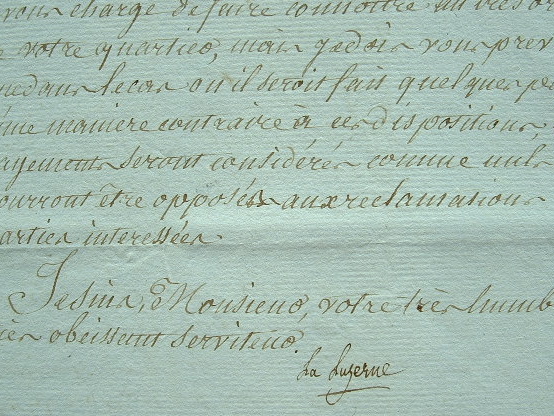 vous charge de faire connoître au
votre quartier, mais je dois vous prev
dans le cas où il seroit fait quelques p
me maniere contraire à ces dispositions,
ayements seront considérés comme nuls
ourront être opposés aux reclamations
arties interessées.
Je suis, Monsieur, votre très humb
obeissant serviteur.
La Luzerne